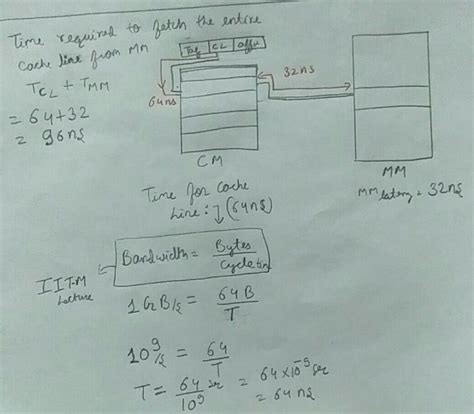 Time required to fetch the entire
cache line from MM
T_CL + T_MM
= 64+32
= 96ns
Tag CL offset
64ns
32ns
CM
MM
MM latency = 32ns
Time for cache
Line: ↓ (64ns)
Bandwidth = Bytes / Cycle time
IITM
Lecture
1 GB/s = 64B / T
10⁹/s = 64 / T
T = 64 / 10⁹ sec = 64×10⁻⁹ sec
= 64ns